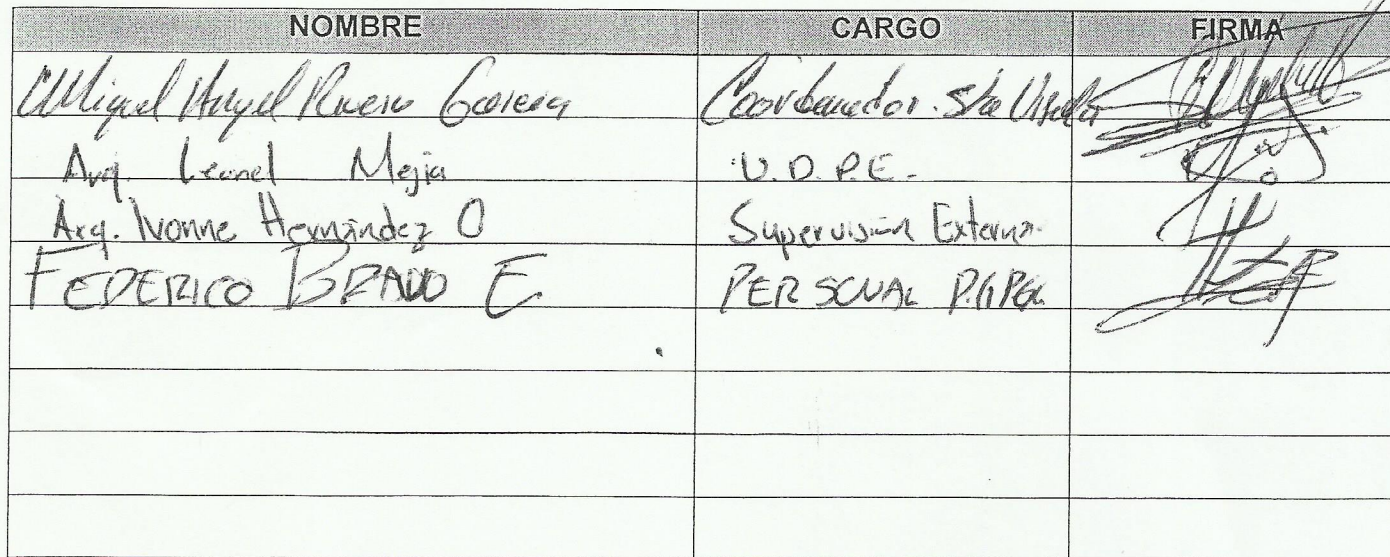 NOMBRE CARGO FIRMA
Miguel Angel Rivero Garcia Coordinador
Arq. Leonel Mejia U.D.P.E.
Arq. Ivonne Hernández O Supervisión Externa.
FEDERICO BRAVO E PERSONAL